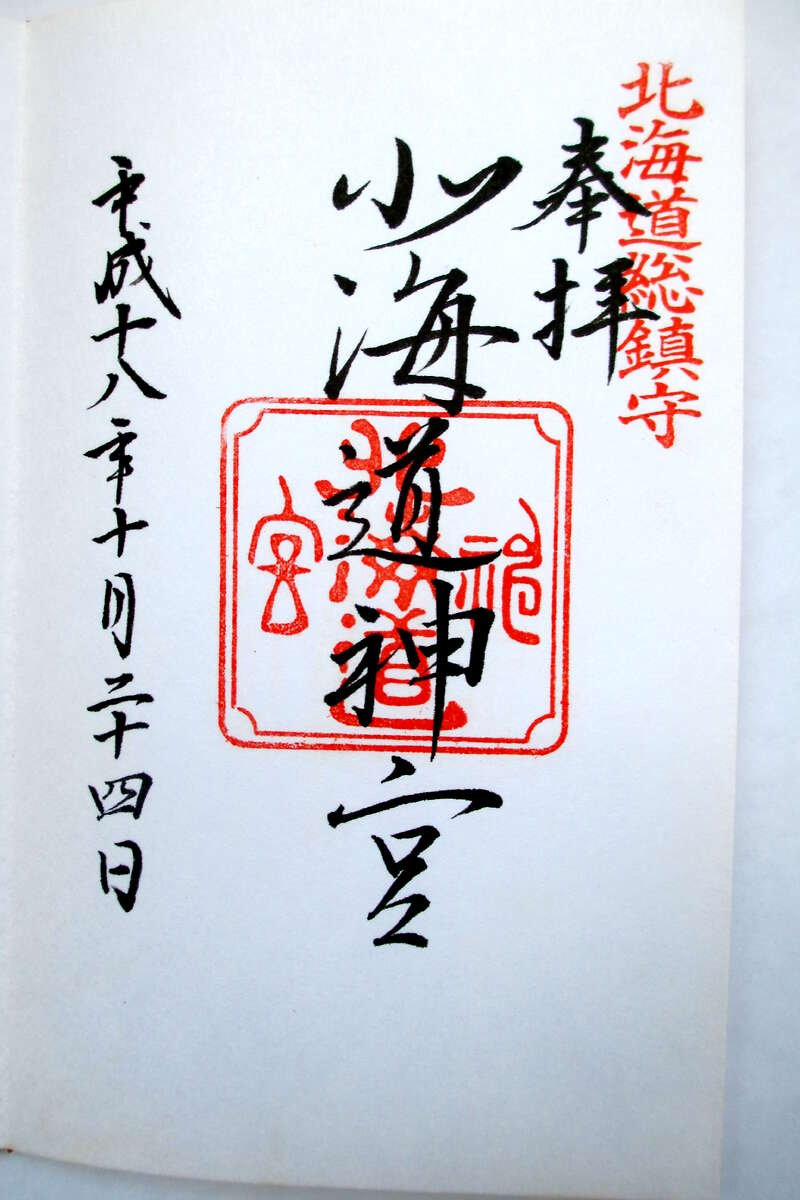 北海道総鎮守
奉拝
北海道神宮
北海道神宮
平成十八年十月二十四日